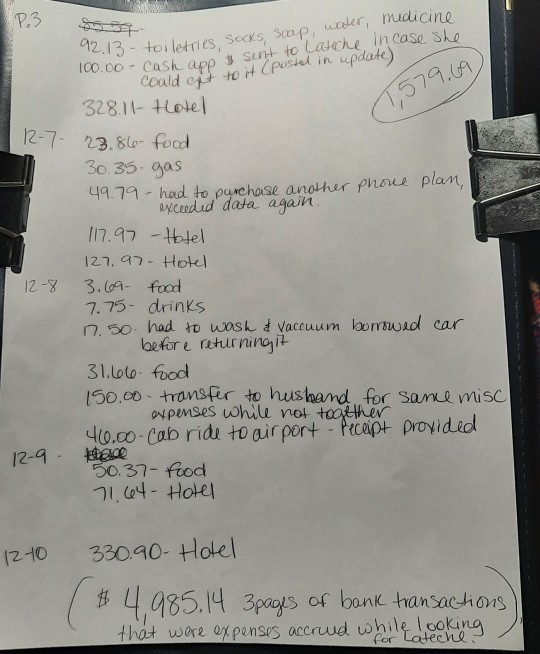 P.3
92.13 - toiletries, socks, soap, water, medicine
100.00 - cash app $ sent to Lateche in case she
could get to it (posted in update)
1,579.69
328.11 - Hotel
12-7 - 23.86 - food
30.35 - gas
49.79 - had to purchase another phone plan,
exceeded data again.
117.97 - Hotel
127.97 - Hotel
12-8 3.69 - food
7.75 - drinks
17.50 - had to wash & vaccuum borrowed car
before returning it
31.66 - food
150.00 - transfer to husband for same misc
expenses while not together
46.00 - cab ride to airport - receipt provided
12-9 -
50.37 - food
71.64 - Hotel
12-10 330.90 - Hotel
($ 4,985.14 3 pages of bank transactions
that were expenses accrued while looking
for Lateche.)